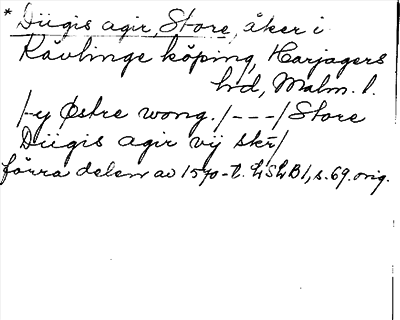 * Diigis agir, Store, åker i
Kävlinge köping, Harjagers
hd, Malm. l.
/-y Østre wong./---/Store
Diigis agir vij skr/
förra delen av 1570-t. LSLB1, s. 69. orig.